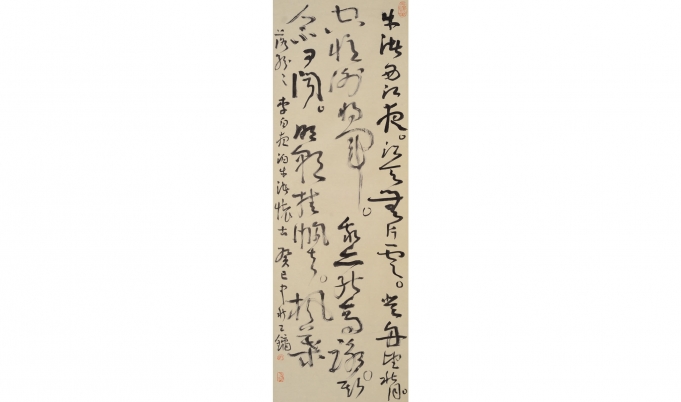 牛渚西江夜。青天無片雲。登舟望秋月。
空憶謝將軍。余亦能高詠。斯
人不可聞。明朝挂帆去。楓葉
落紛々 李白夜泊牛渚懷古 癸巳中秋王鏞